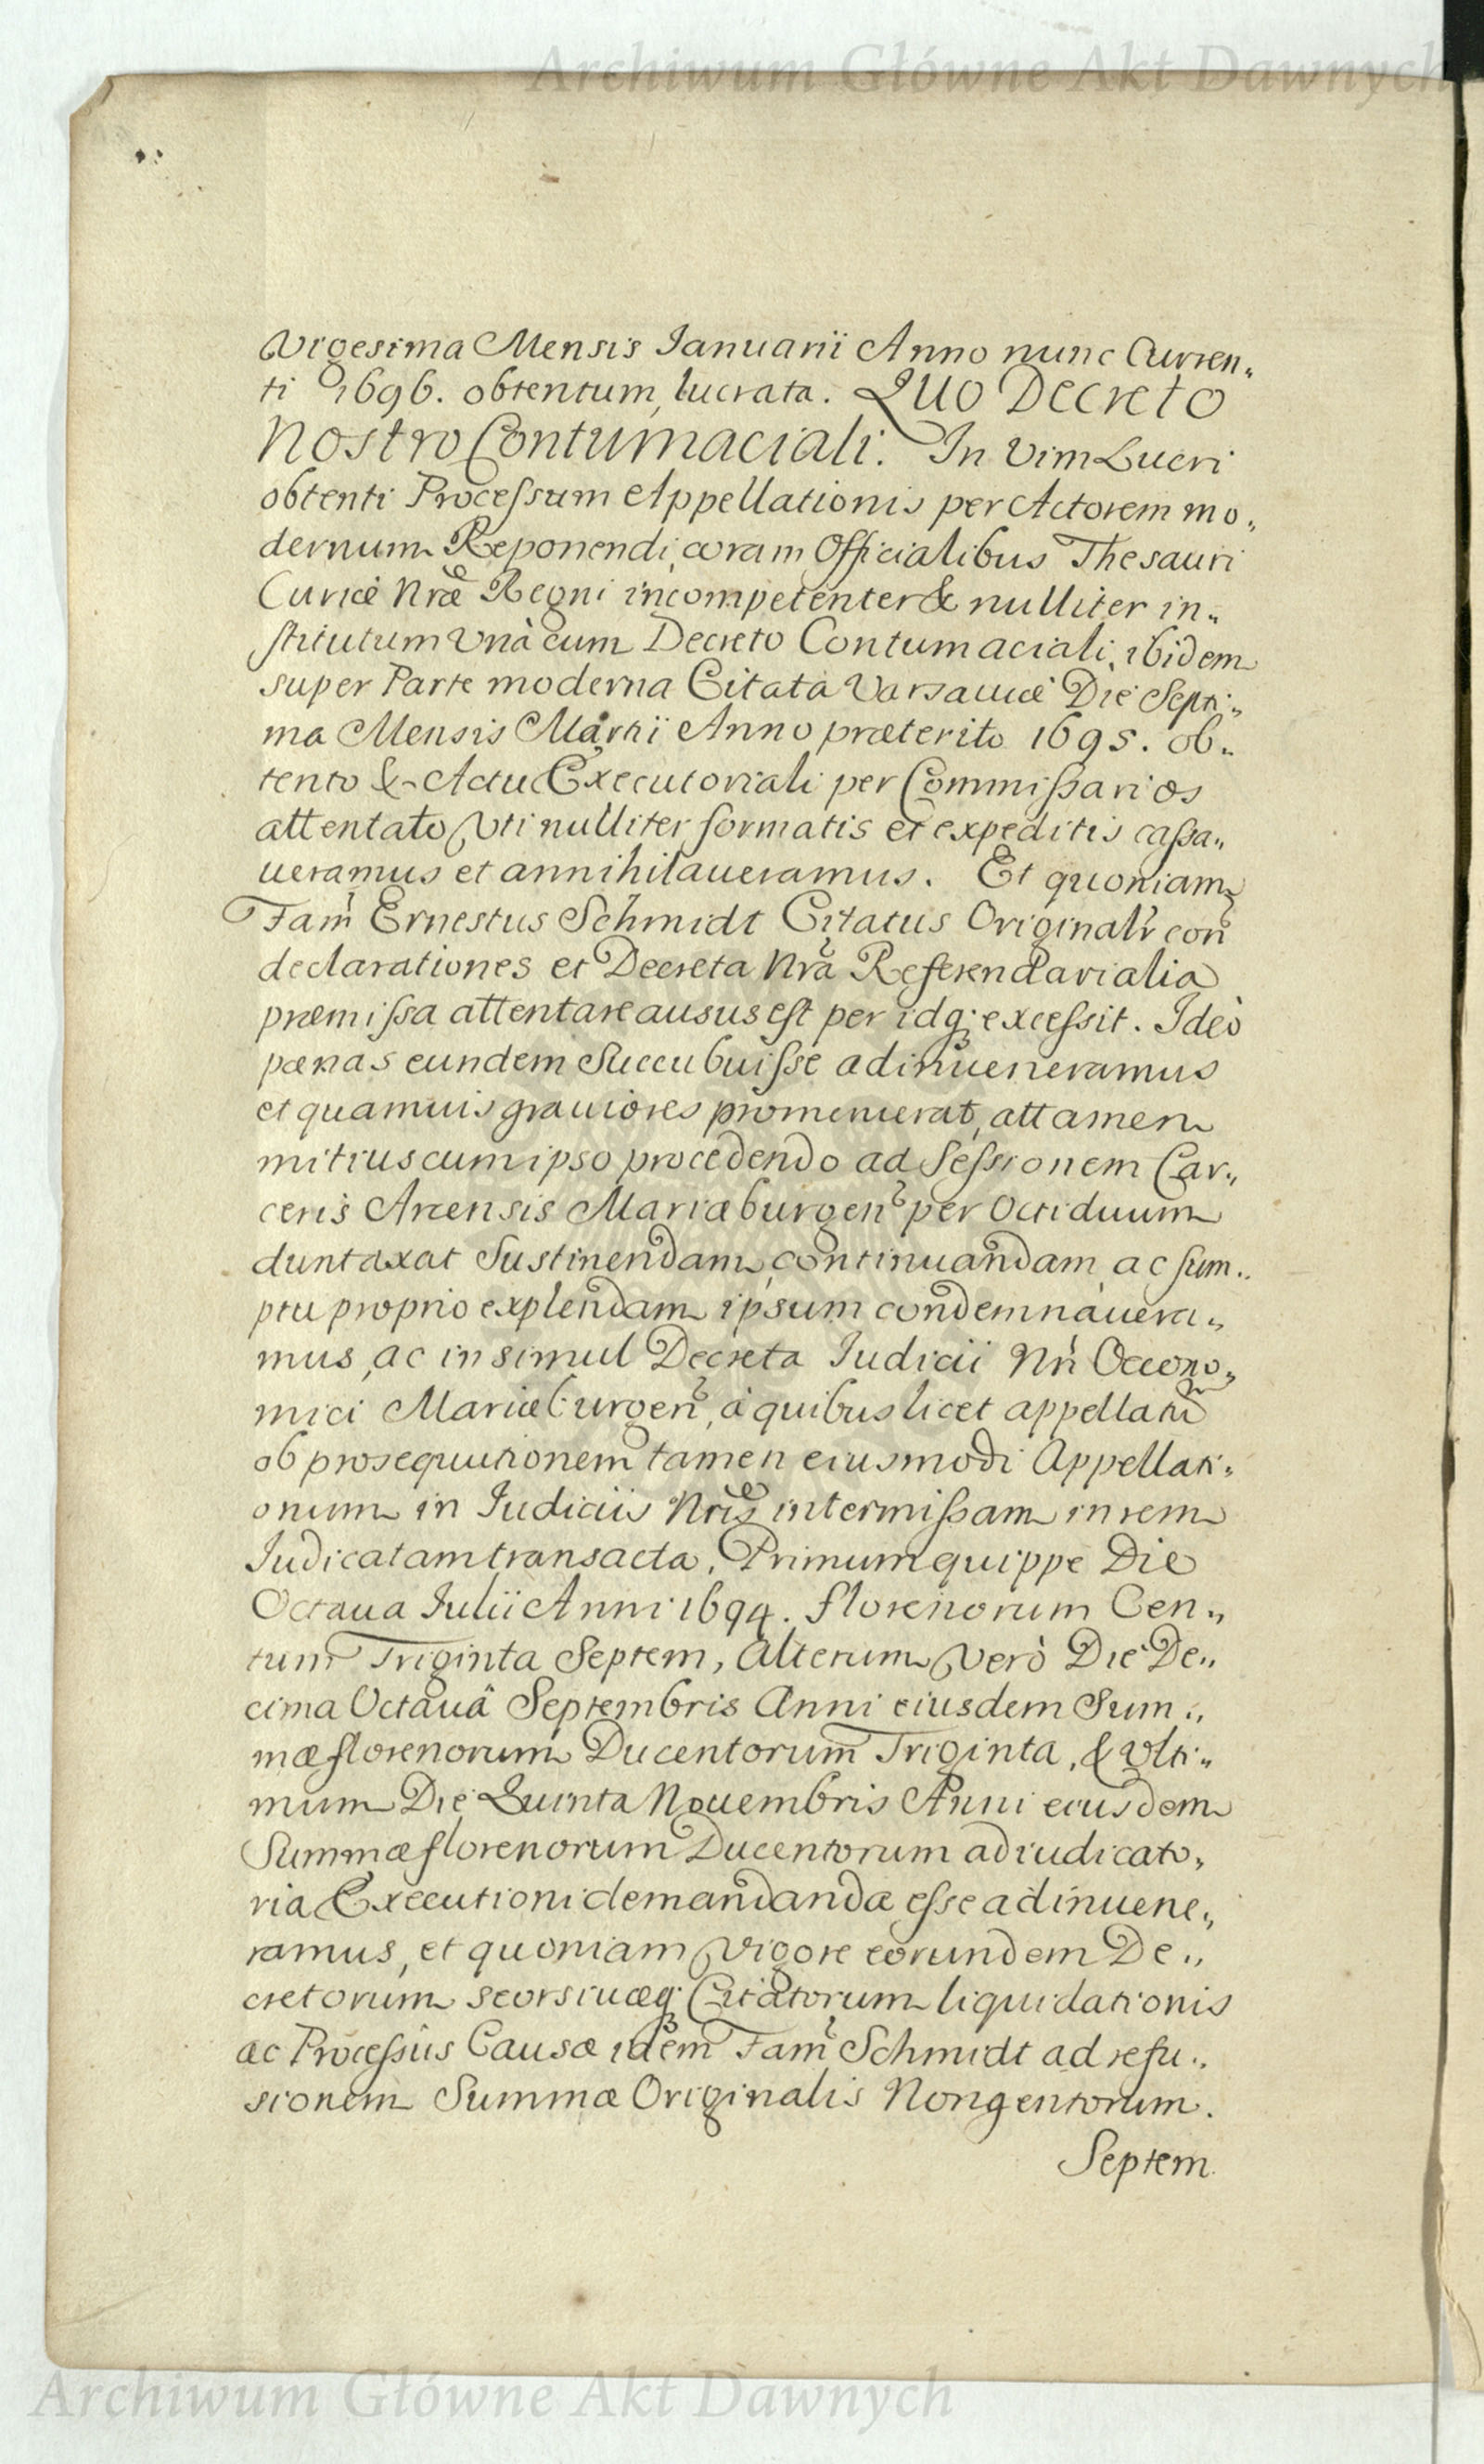 Archiwum Główne Akt Dawnych
Vigesima Mensis Ianuarii Anno nunc Curren„
ti 1696. obtentum, lucrata. Quo Decreto
Nostro Contumaciali. In Vim Lucri
obtenti Processum Appellationis per Actorem mo„
dernum Reponendi, coram Officialibus Thesauri
Curiæ Nræ Regni incompetenter & nulliter in„
stitutum Vnà cum Decreto Contumaciali, ibidem
super Parte moderna Citata Varsauiæ Die Septi„
ma Mensis Martii Anno præterito 1695. ob„
tento & Actu Executoriali per Commissarios
attentato Vti nulliter formatis et expeditis cassa„
ueramus et annihilaueramus. Et quoniam
Fam Ernestus Schmidt Citatus Originalr con
declarationes et Decreta Nra Referendarialia
præmissa attentare ausus est per idq; excessit. Ideò
pænas eundem Succubuisse adinueneramus
et quamuis grauiores promeruerat, attamen
mitius cum ipso procedendo ad Sessionem Car„
ceris Arcensis Mariæburgen per Octiduum
duntaxat Sustinendam, continuandam, ac sum„
ptu proprio explendam ipsum condemnauera„
mus, ac insimul Decreta Iudicii Nri Oecono„
mici Mariæburgen, à quibus licet appellatū
ob prosequutionem tamen eiusmodi Appellati„
onum in Iudiciis Nris intermissam in rem
Iudicatam transacta, Primum quippe Die
Octaua Iulii Anni 1694. florenorum Cen„
tum Triginta Septem, Alterum Verò Die De„
cima Octauâ Septembris Anni eiusdem Sum„
mæ florenorum Ducentorum Triginta, & Vlti„
mum Die Quinta Nouembris Anni eiusdem
Summæ florenorum Ducentorum adiudicato„
ria Executioni demandanda esse adinuene„
ramus, et quoniam Vigore eorundem De„
cretorum seorsiuæq; Citatorum liquidationis
ac Processûs Causæ idem Fam Schmidt ad refu„
sionem Summæ Originalis Nongentorum.
Septem
Archiwum Główne Akt Dawnych